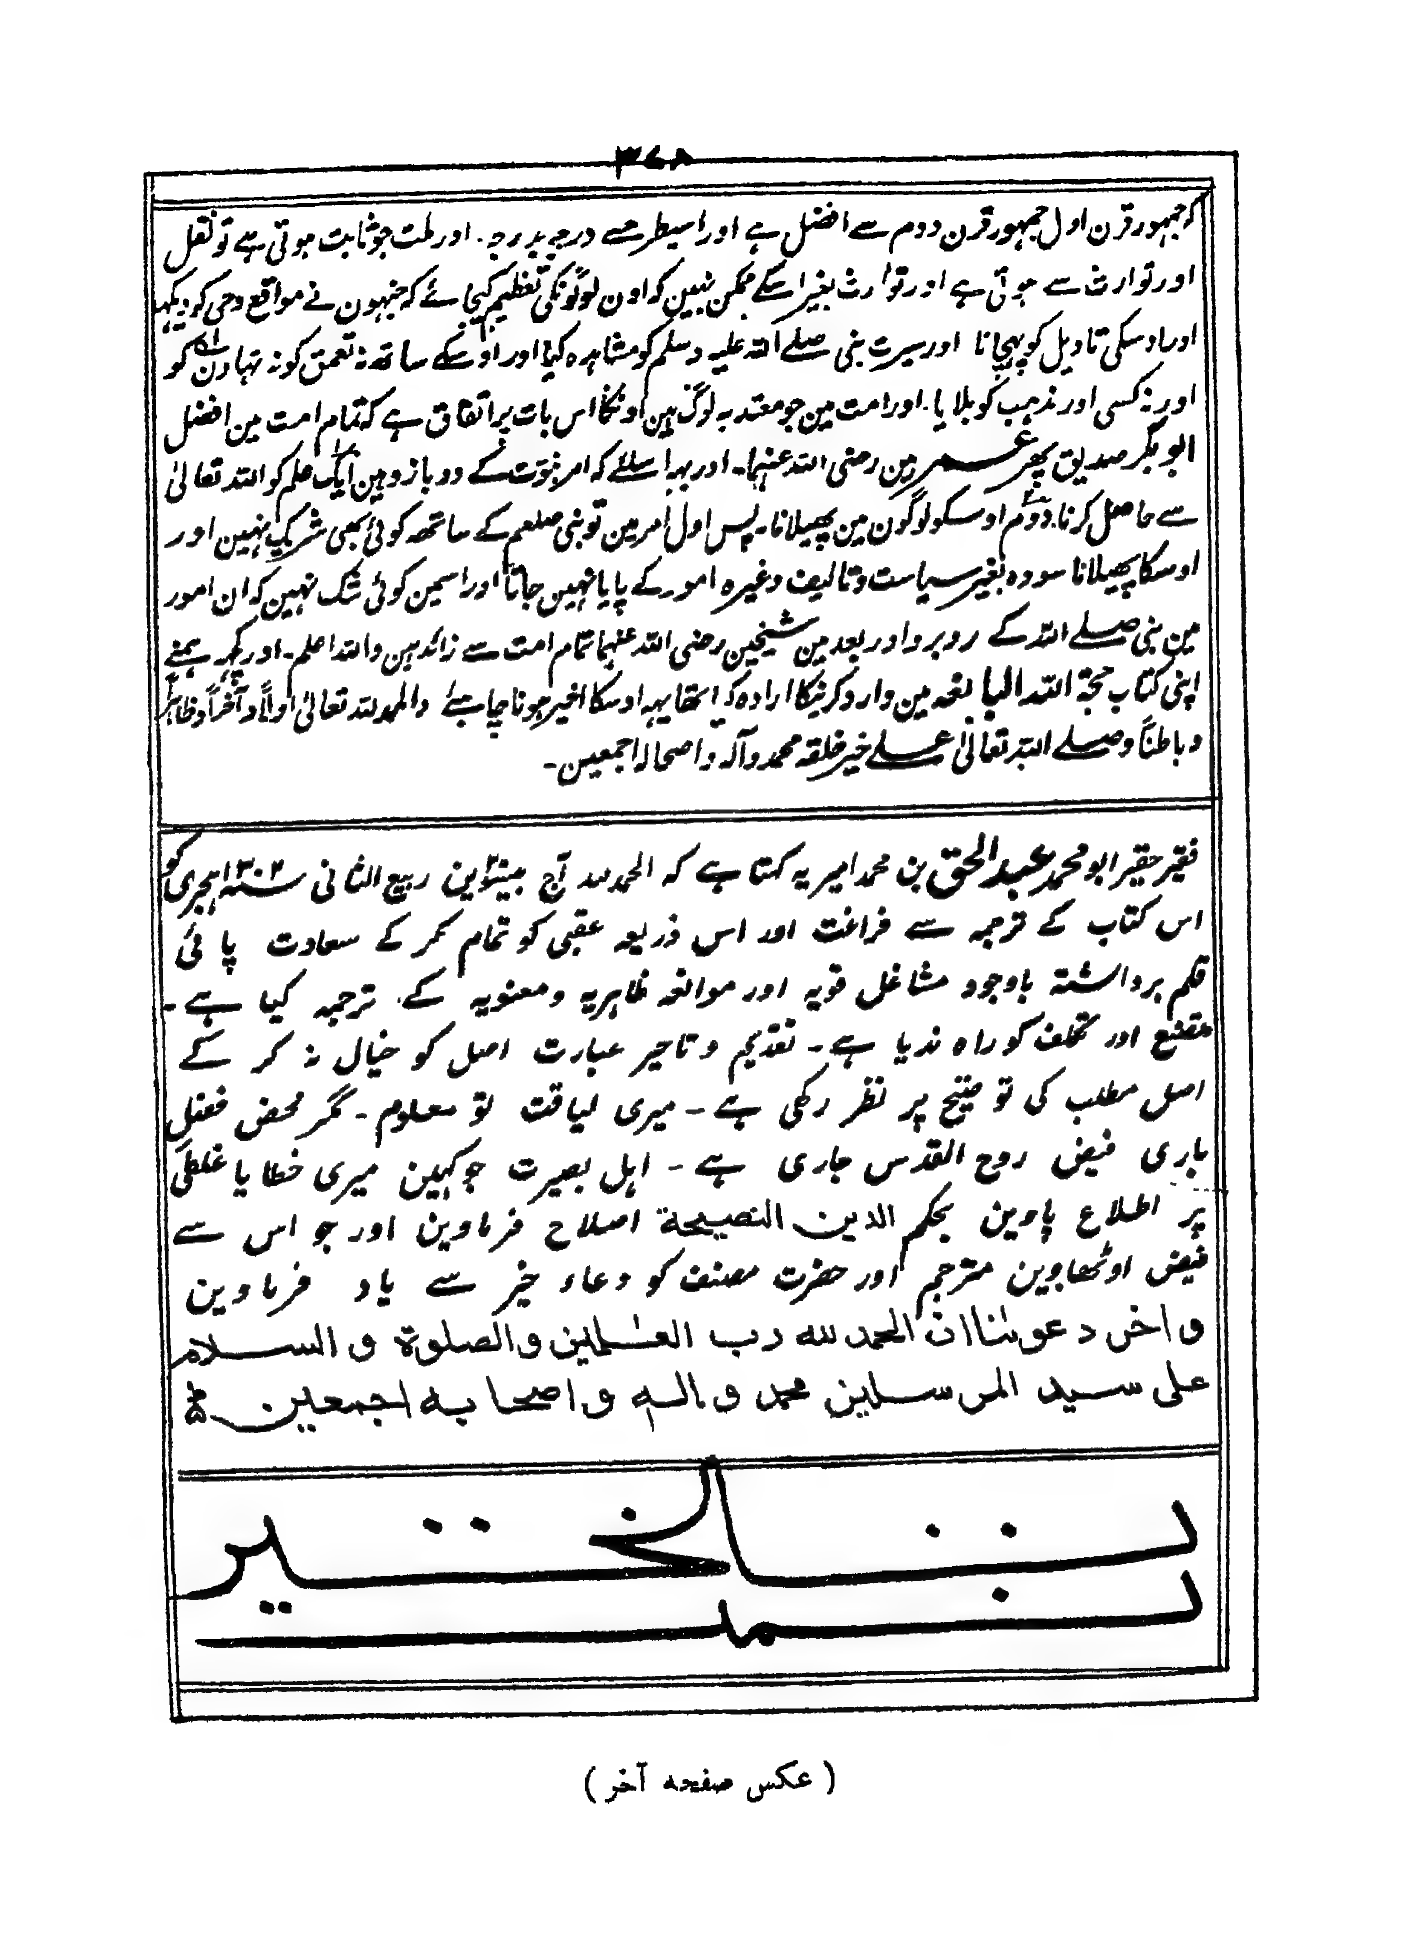 ۳۶۸
کہ جمہور قرن اول جمہور قرن دوم سے افضل ہے اور اسیطرح سے درجہ بدرجہ۔ اور ملت جو ثابت ہوتی ہے تو نقل
اور توارث سے ہوتی ہے اور توارث بغیر اسکے ممکن نہین کہ اون لوگونکی تعظیم کیجائے کہ جنہون نے مواقع وحی کو دیکھا
اور اوسکی تاویل کو پہچانا اور سیرت نبی صلے اللہ علیہ وسلم کو مشاہدہ کیا اور اوسکے ساتھ نہ تعمق کو نہ تہاون کو
اور نہ کسی اور مذہب کو ملایا۔ اور امت مین جو معتد بہ لوگ ہین اونکا اس بات پر اتفاق ہے کہ تمام امت مین افضل
ابوبکر صدیق پھر عمر ہین رضی اللہ عنہما۔ اور یہہ اسلئے کہ امر نبوت کے دو بازو ہین ایک علم کو اللہ تعالیٰ
سے حاصل کرنا۔ دوم اوسکو لوگون مین پھیلانا۔ پس اول امر مین تو نبی صلعم کے ساتھ کوئی بھی شریک نہین اور
اوسکا پھیلانا سو وہ بغیر سیاست و تالیف وغیرہ امور کے پایا نہین جاتا اور اسمین کوئی شک نہین کہ ان امور
مین نبی صلے اللہ کے روبرو اور بعد مین شیخین رضی اللہ عنہما تمام امت سے زائد ہین واللہ اعلم۔ اور کچھ ہمنے
اپنی کتاب حجۃ اللہ البالغہ مین وارد کرنیکا ارادہ کیا تھا یہہ اوسکا اخیر ہونا چاہیے والحمد للہ تعالیٰ اولاً و آخراً و ظاہراً
و باطناً و صلے اللہ تعالیٰ علے خیر خلقہ محمد و آلہ و اصحابہ اجمعین۔
فقیر حقیر ابو محمد عبد الحق بن محمد امیر یہ کہتا ہے کہ الحمد للہ آج ربیع الثانی ۱۳۰۲ ہجری کو
اس کتاب کے ترجمہ سے فراغت اور اس ذریعہ عقبی کو تمام کر کے سعادت پائی
قلم برداشتہ باوجود مشاغل قویہ اور موانعہ ظاہریہ و معنویہ کے۔ ترجمہ کیا ہے۔
تصنع اور تکلف کو راہ ندیا ہے۔ تقدیم و تاخیر عبارت اصل کو خیال نہ کر کے
اصل مطلب کی توضیح پر نظر رکھی ہے۔ میری لیاقت تو معلوم۔ مگر محض فضل
باری فیض روح القدس جاری ہے۔ اہل بصیرت جو کہین میری خطا یا غلطی
پر اطلاع پاوین بحکم الدین النصیحۃ اصلاح فرماوین اور جو اس سے
فیض اوٹھاوین مترجم اور حضرت مصنف کو دعاء خیر سے یاد فرماوین
و اخر دعوٰنا ان الحمد للہ رب العٰلمین والصلوۃ و السلام
علی سید المرسلین محمد و الہ و اصحابہ اجمعین
تمت بالخیر
( عکس صفحہ آخر )